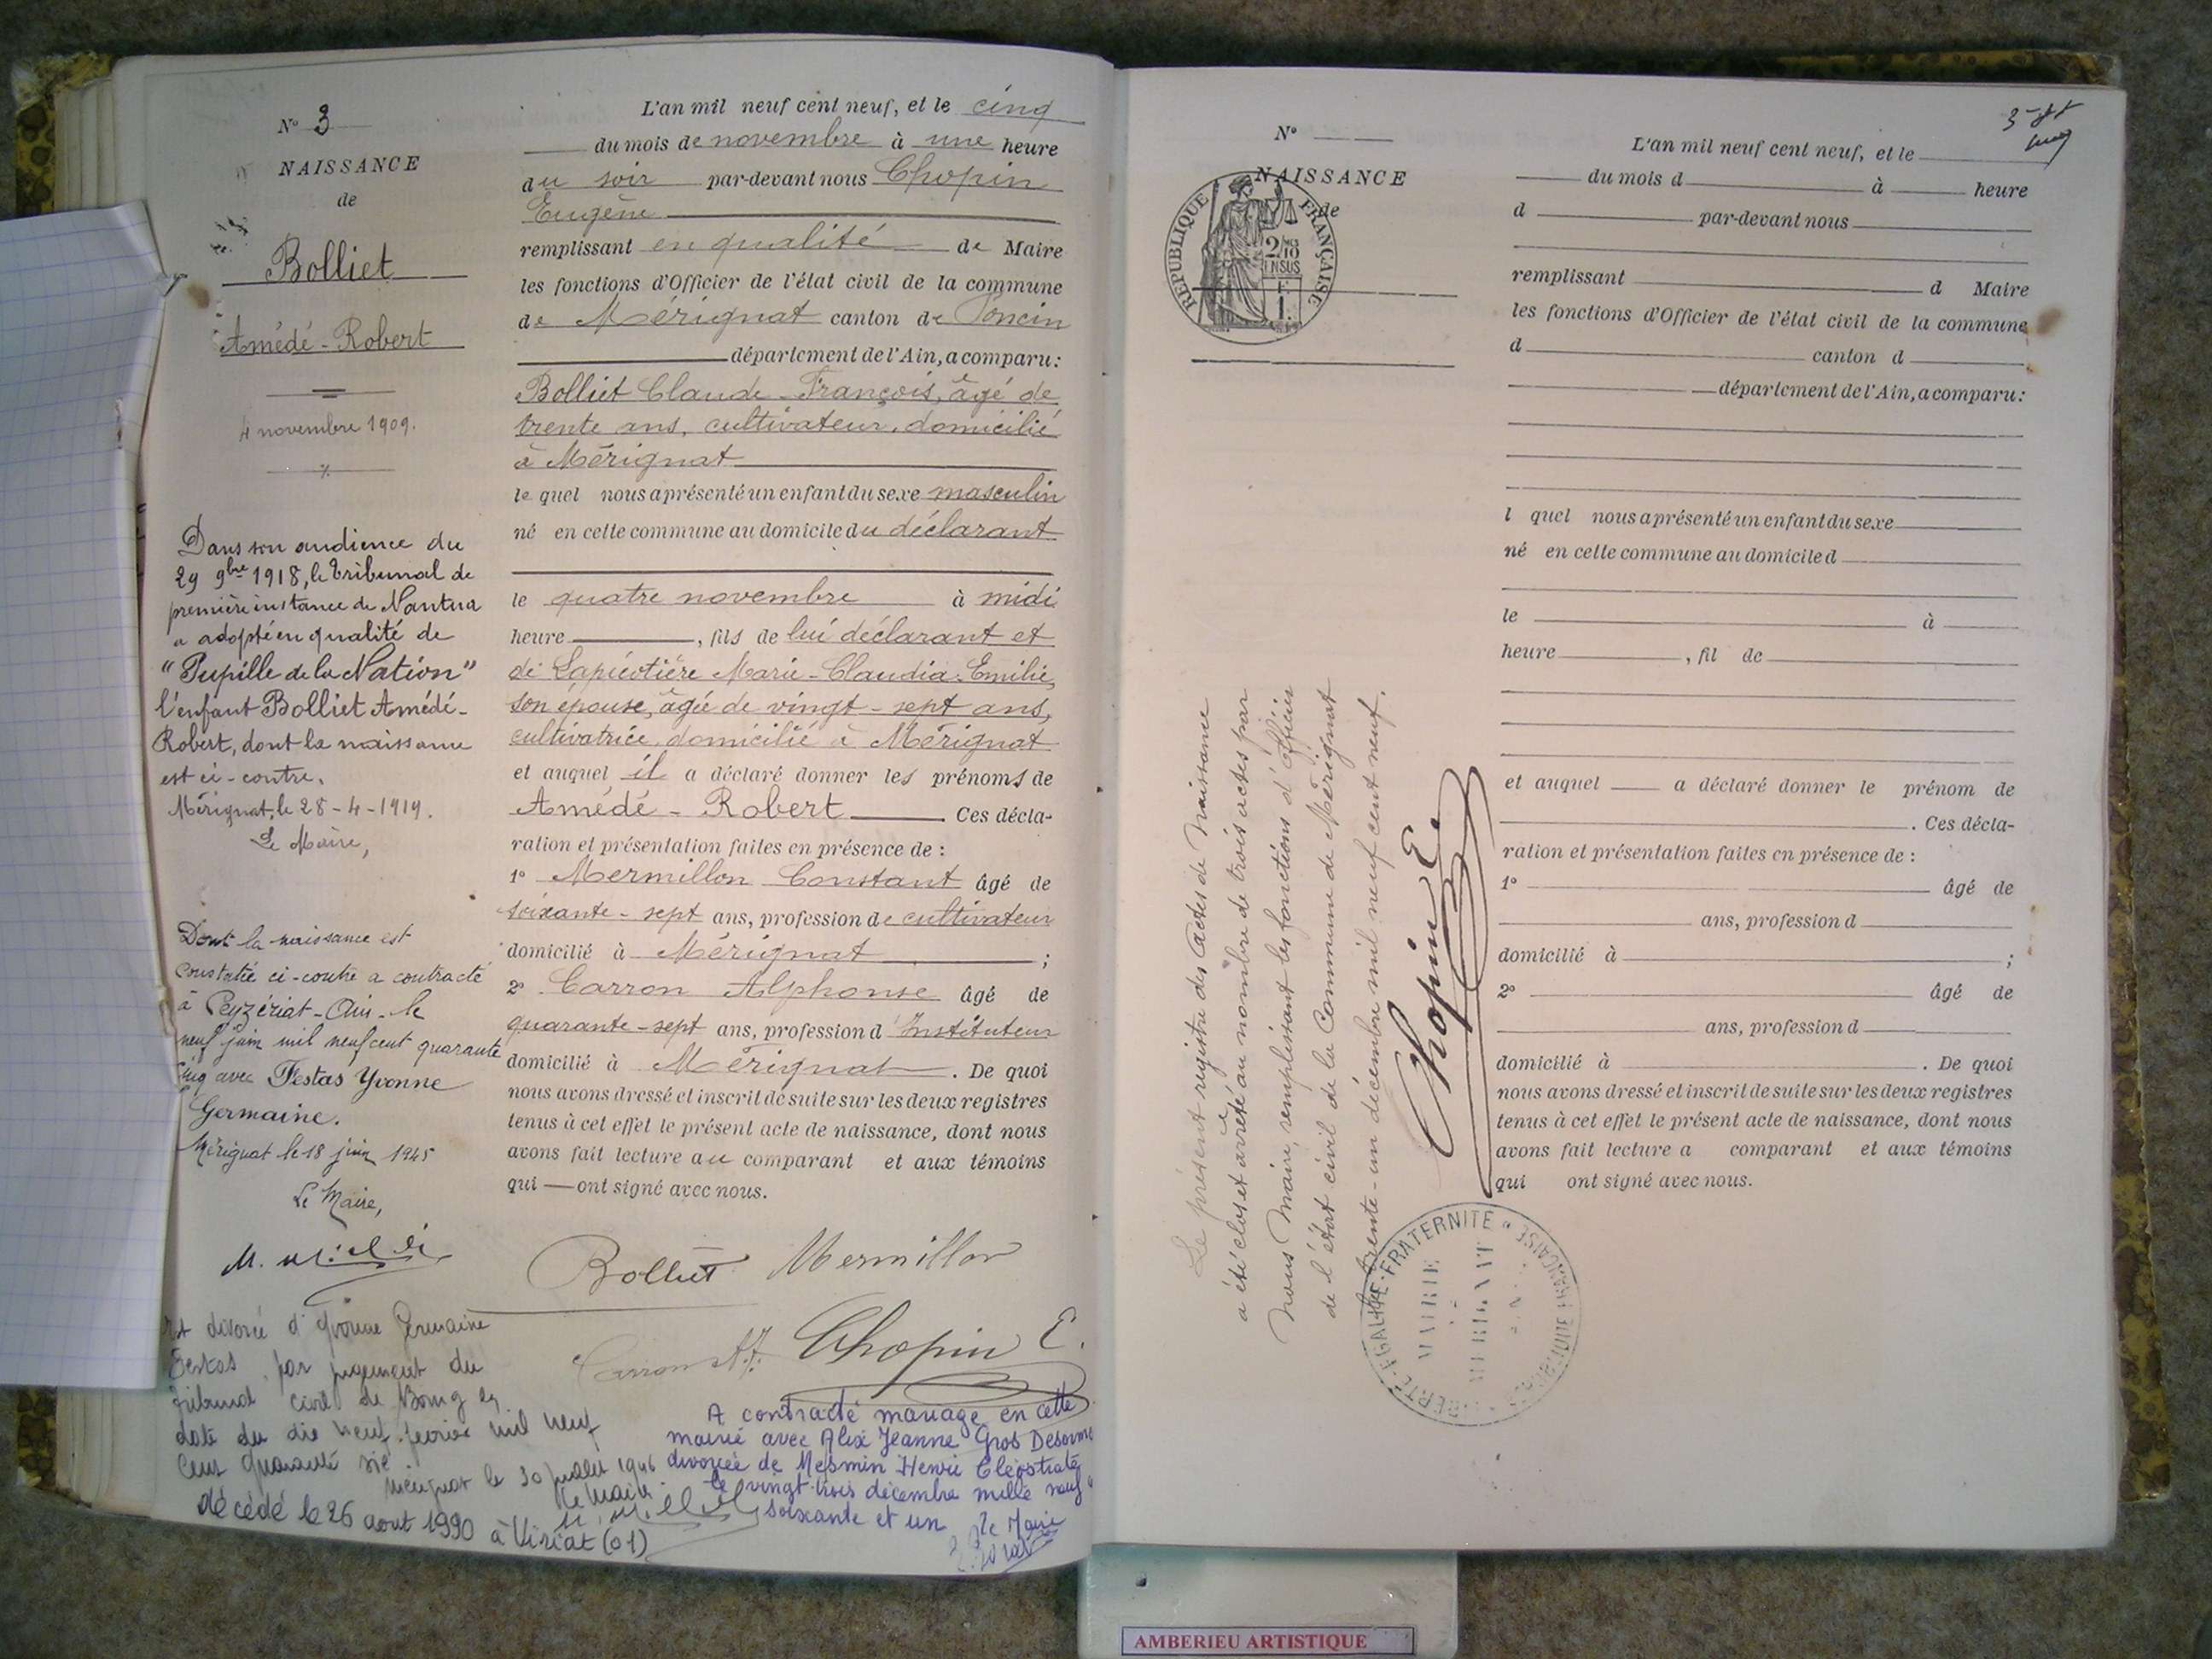 N° 3
NAISSANCE
de
Bolliet
Amédé-Robert
4 novembre 1909.
Dans son audience du
29 9bre 1918, le tribunal de
première instance de Nantua
a adopté en qualité de
"Pupille de la Nation"
l'enfant Bolliet Amédé-
Robert, dont la naissance
est ci-contre.
Mérignat, le 28-4-1919.
Le Maire,
Dont la naissance est
constatée ci-contre a contracté
à Peyzériat-Ain-le
neuf juin mil neuf cent quarante
cinq avec Festas Yvonne
Germaine.
Mérignat le 18 juin 1945
Le Maire,
Est divorcé d'Yvonne Germaine
Festas, par jugement du
tribunal civil de Bourg en
date du dix neuf février mil neuf
cent quarante six
Mérignat le 30 juillet 1946
Le Maire
décédé le 26 aout 1990 à Viriat (01)
L'an mil neuf cent neuf, et le cinq
du mois de novembre à une heure
du soir par-devant nous Chopin
Eugène
remplissant en qualité de Maire
les fonctions d'Officier de l'état civil de la commune
de Mérignat canton de Poncin
département de l'Ain, a comparu:
Bolliet Claude-François, âgé de
trente ans, cultivateur, domicilié
à Mérignat
lequel nous a présenté un enfant du sexe masculin
né en cette commune au domicile du déclarant
le quatre novembre à midi
heure, fils de lui déclarant et
de Lapierre Marie-Claudia-Emilie,
son épouse, âgée de vingt-sept ans,
cultivatrice, domicilié à Mérignat
et auquel il a déclaré donner les prénoms de
Amédé-Robert. Ces décla-
ration et présentation faites en présence de :
1° Mermillon Constant âgé de
soixante-sept ans, profession de cultivateur
domicilié à Mérignat ;
2° Carron Alphonse âgé de
quarante-sept ans, profession d'Instituteur
domicilié à Mérignat. De quoi
nous avons dressé et inscrit de suite sur les deux registres
tenus à cet effet le présent acte de naissance, dont nous
avons fait lecture au comparant et aux témoins
qui — ont signé avec nous.
Bolliet Mermillon
Carron A. Chopin E.
A contracté mariage en cette
mairie avec Alix Jeanne Gros Desorme
divorcée de Mesmin Henri Cléostrate
le vingt-trois décembre mille neuf
soixante et un le Maire
N°
NAISSANCE
de
RÉPUBLIQUE FRANÇAISE
2/10
EN SUS
F.
1.
Le présent registre des Actes de Naissance
a été clos et arrêté au nombre de trois actes par
Nous Maire, remplissant les fonctions d'officier
de l'état civil de la Commune de Mérignat
le trente-un décembre mil neuf cent neuf.
Chopin E.
LIBERTÉ-ÉGALITÉ-FRATERNITÉ
RÉPUBLIQUE FRANÇAISE
MAIRIE
MÉRIGNAT
L'an mil neuf cent neuf, et le
du mois d à heure
d par-devant nous
remplissant d Maire
les fonctions d'Officier de l'état civil de la commune
d canton d
département de l'Ain, a comparu:
l quel nous a présenté un enfant du sexe
né en cette commune au domicile d
le à
heure, fil de
et auquel a déclaré donner le prénom de
. Ces décla-
ration et présentation faites en présence de :
1° âgé de
ans, profession d
domicilié à ;
2° âgé de
ans, profession d
domicilié à . De quoi
nous avons dressé et inscrit de suite sur les deux registres
tenus à cet effet le présent acte de naissance, dont nous
avons fait lecture a comparant et aux témoins
qui ont signé avec nous.
AMBERIEU ARTISTIQUE